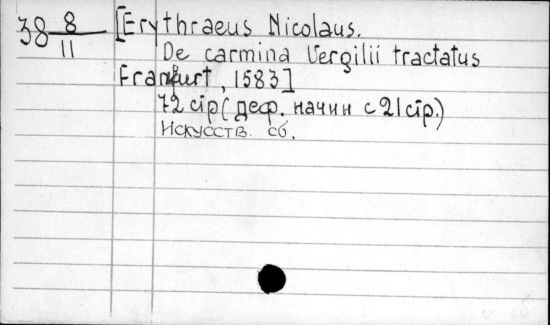 38 8/11 [Erythraeus Nicolaus.
De carmina Vergilii tractatus
Frankfurt, 1583]
72 стр (деф. начин с 21 стр.)
Искусств. сб.